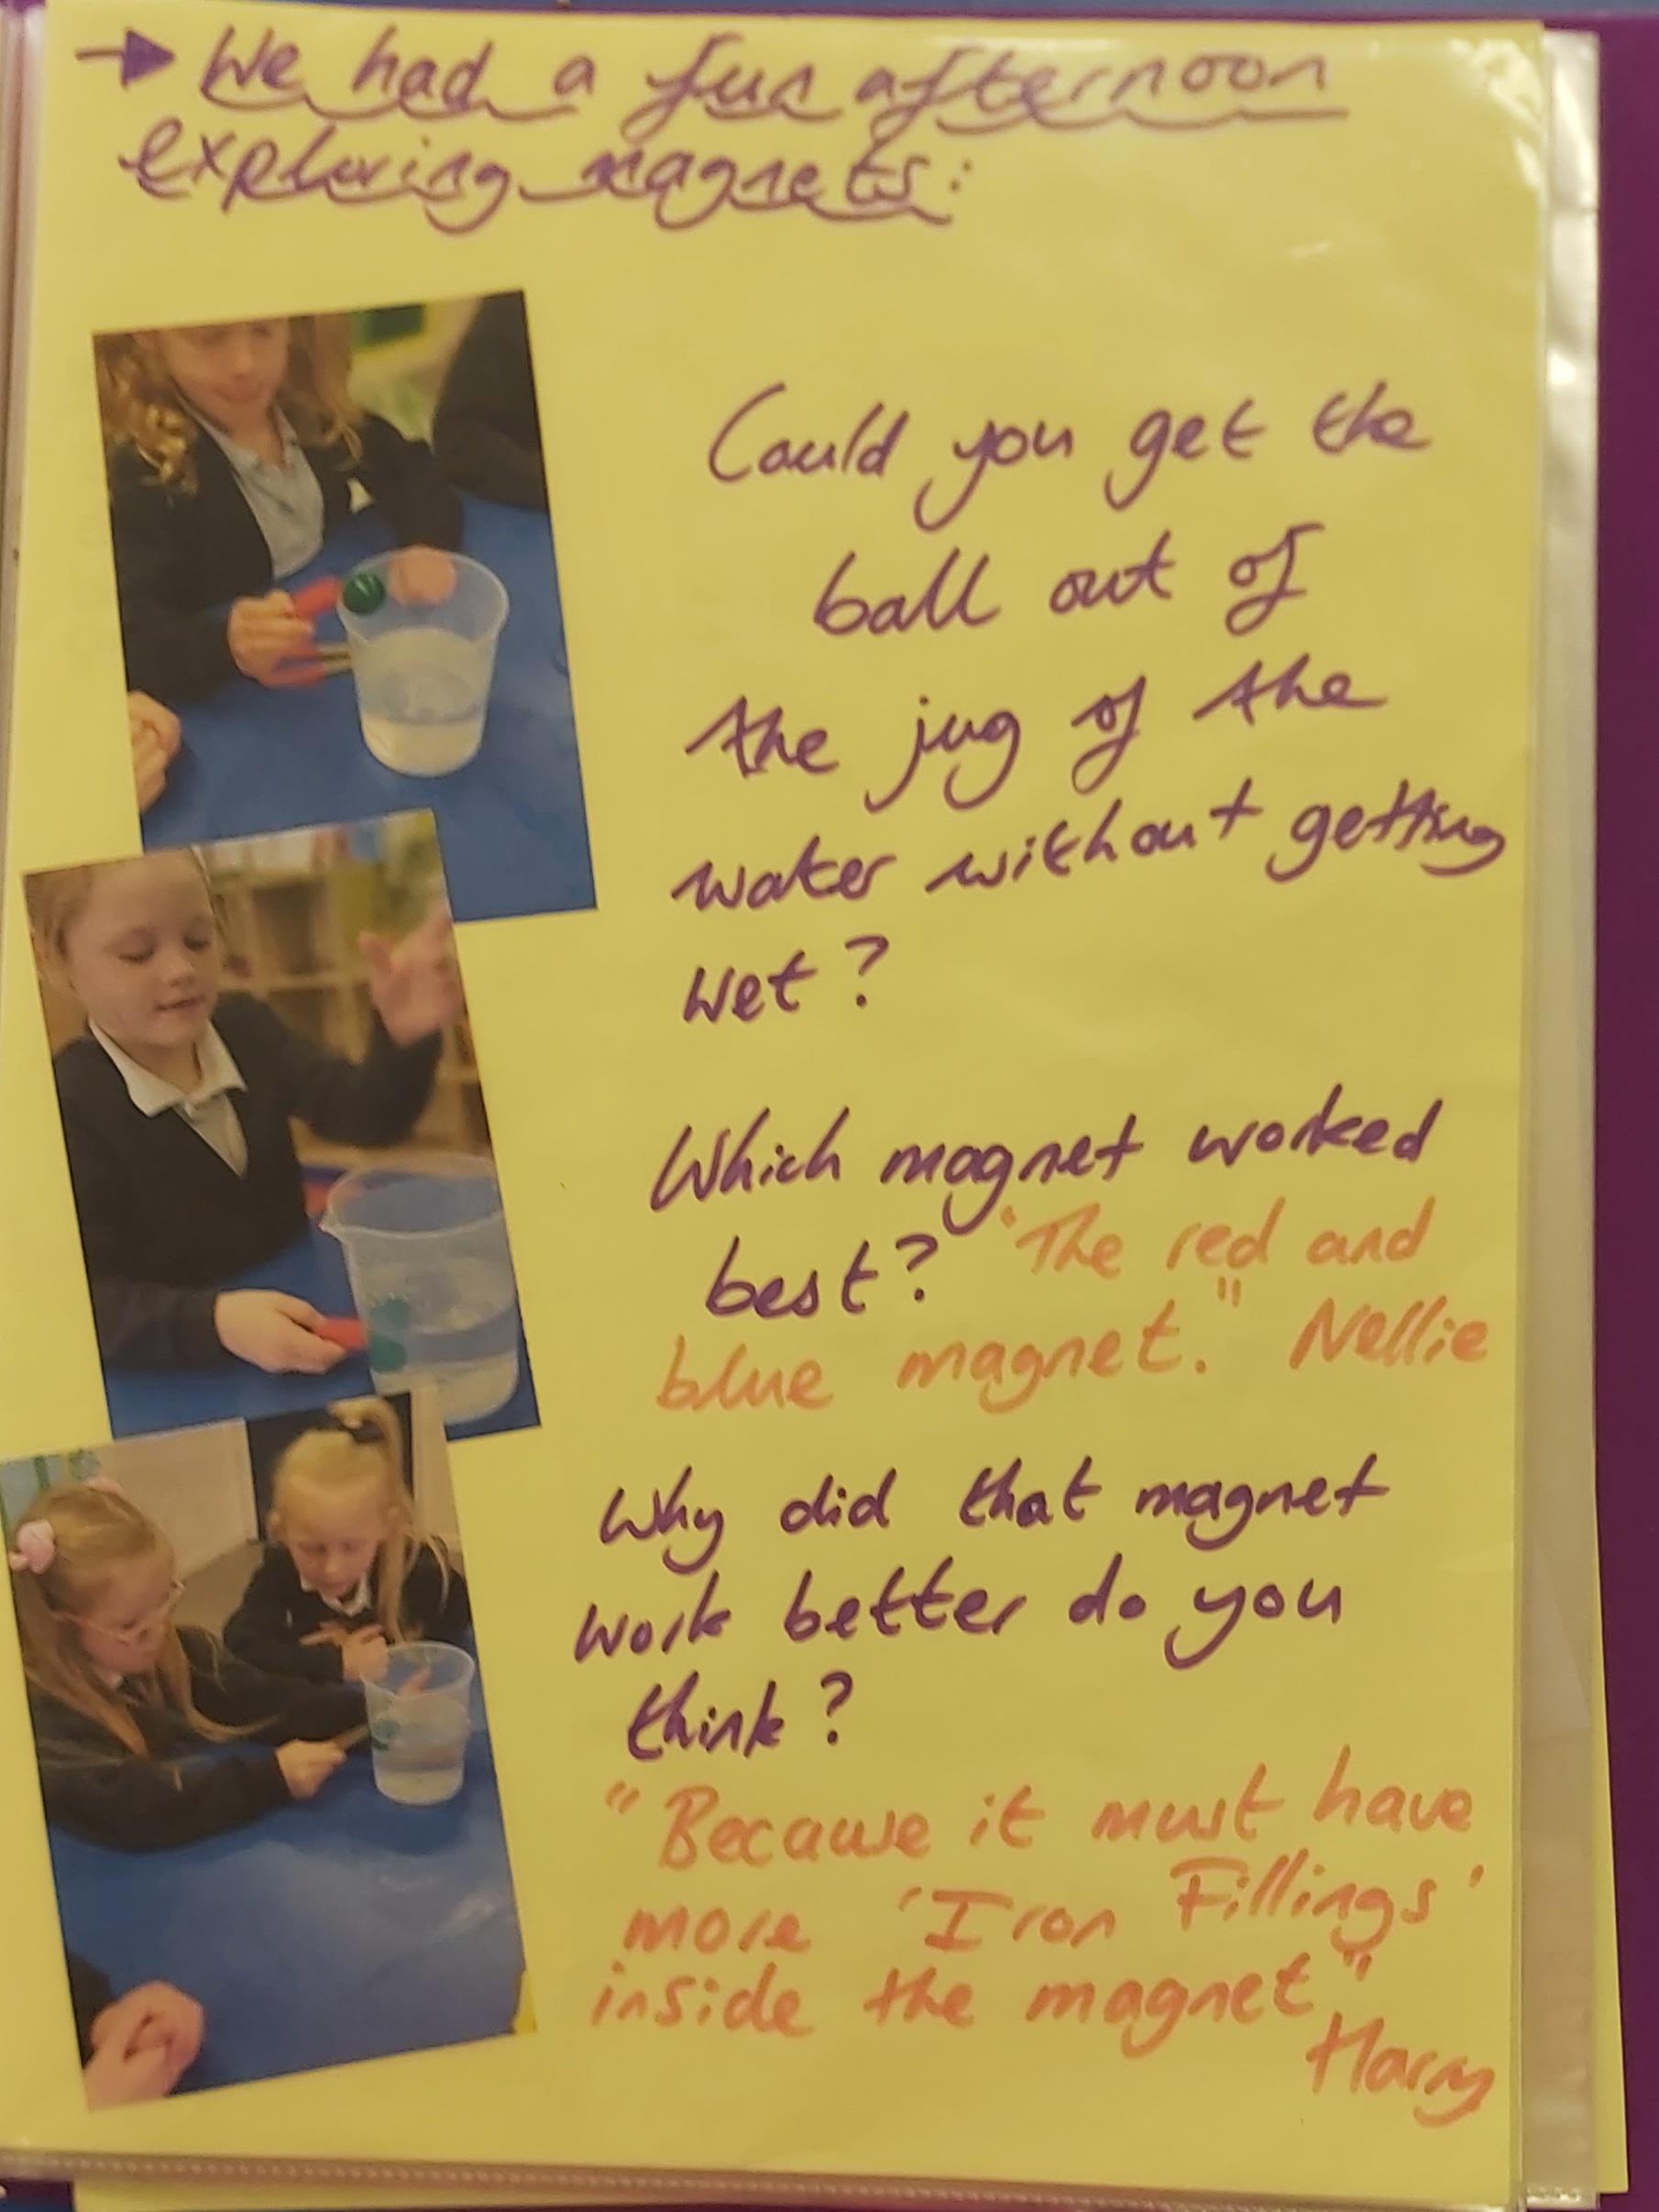 We had a fun afternoon
exploring magnets:
Could you get the
ball out of
the jug of the
water without getting
wet?
Which magnet worked
best? "The red and
blue magnet." Nellie
Why did that magnet
work better do you
think?
"Because it must have
more 'Iron Fillings'
inside the magnet"
Harry